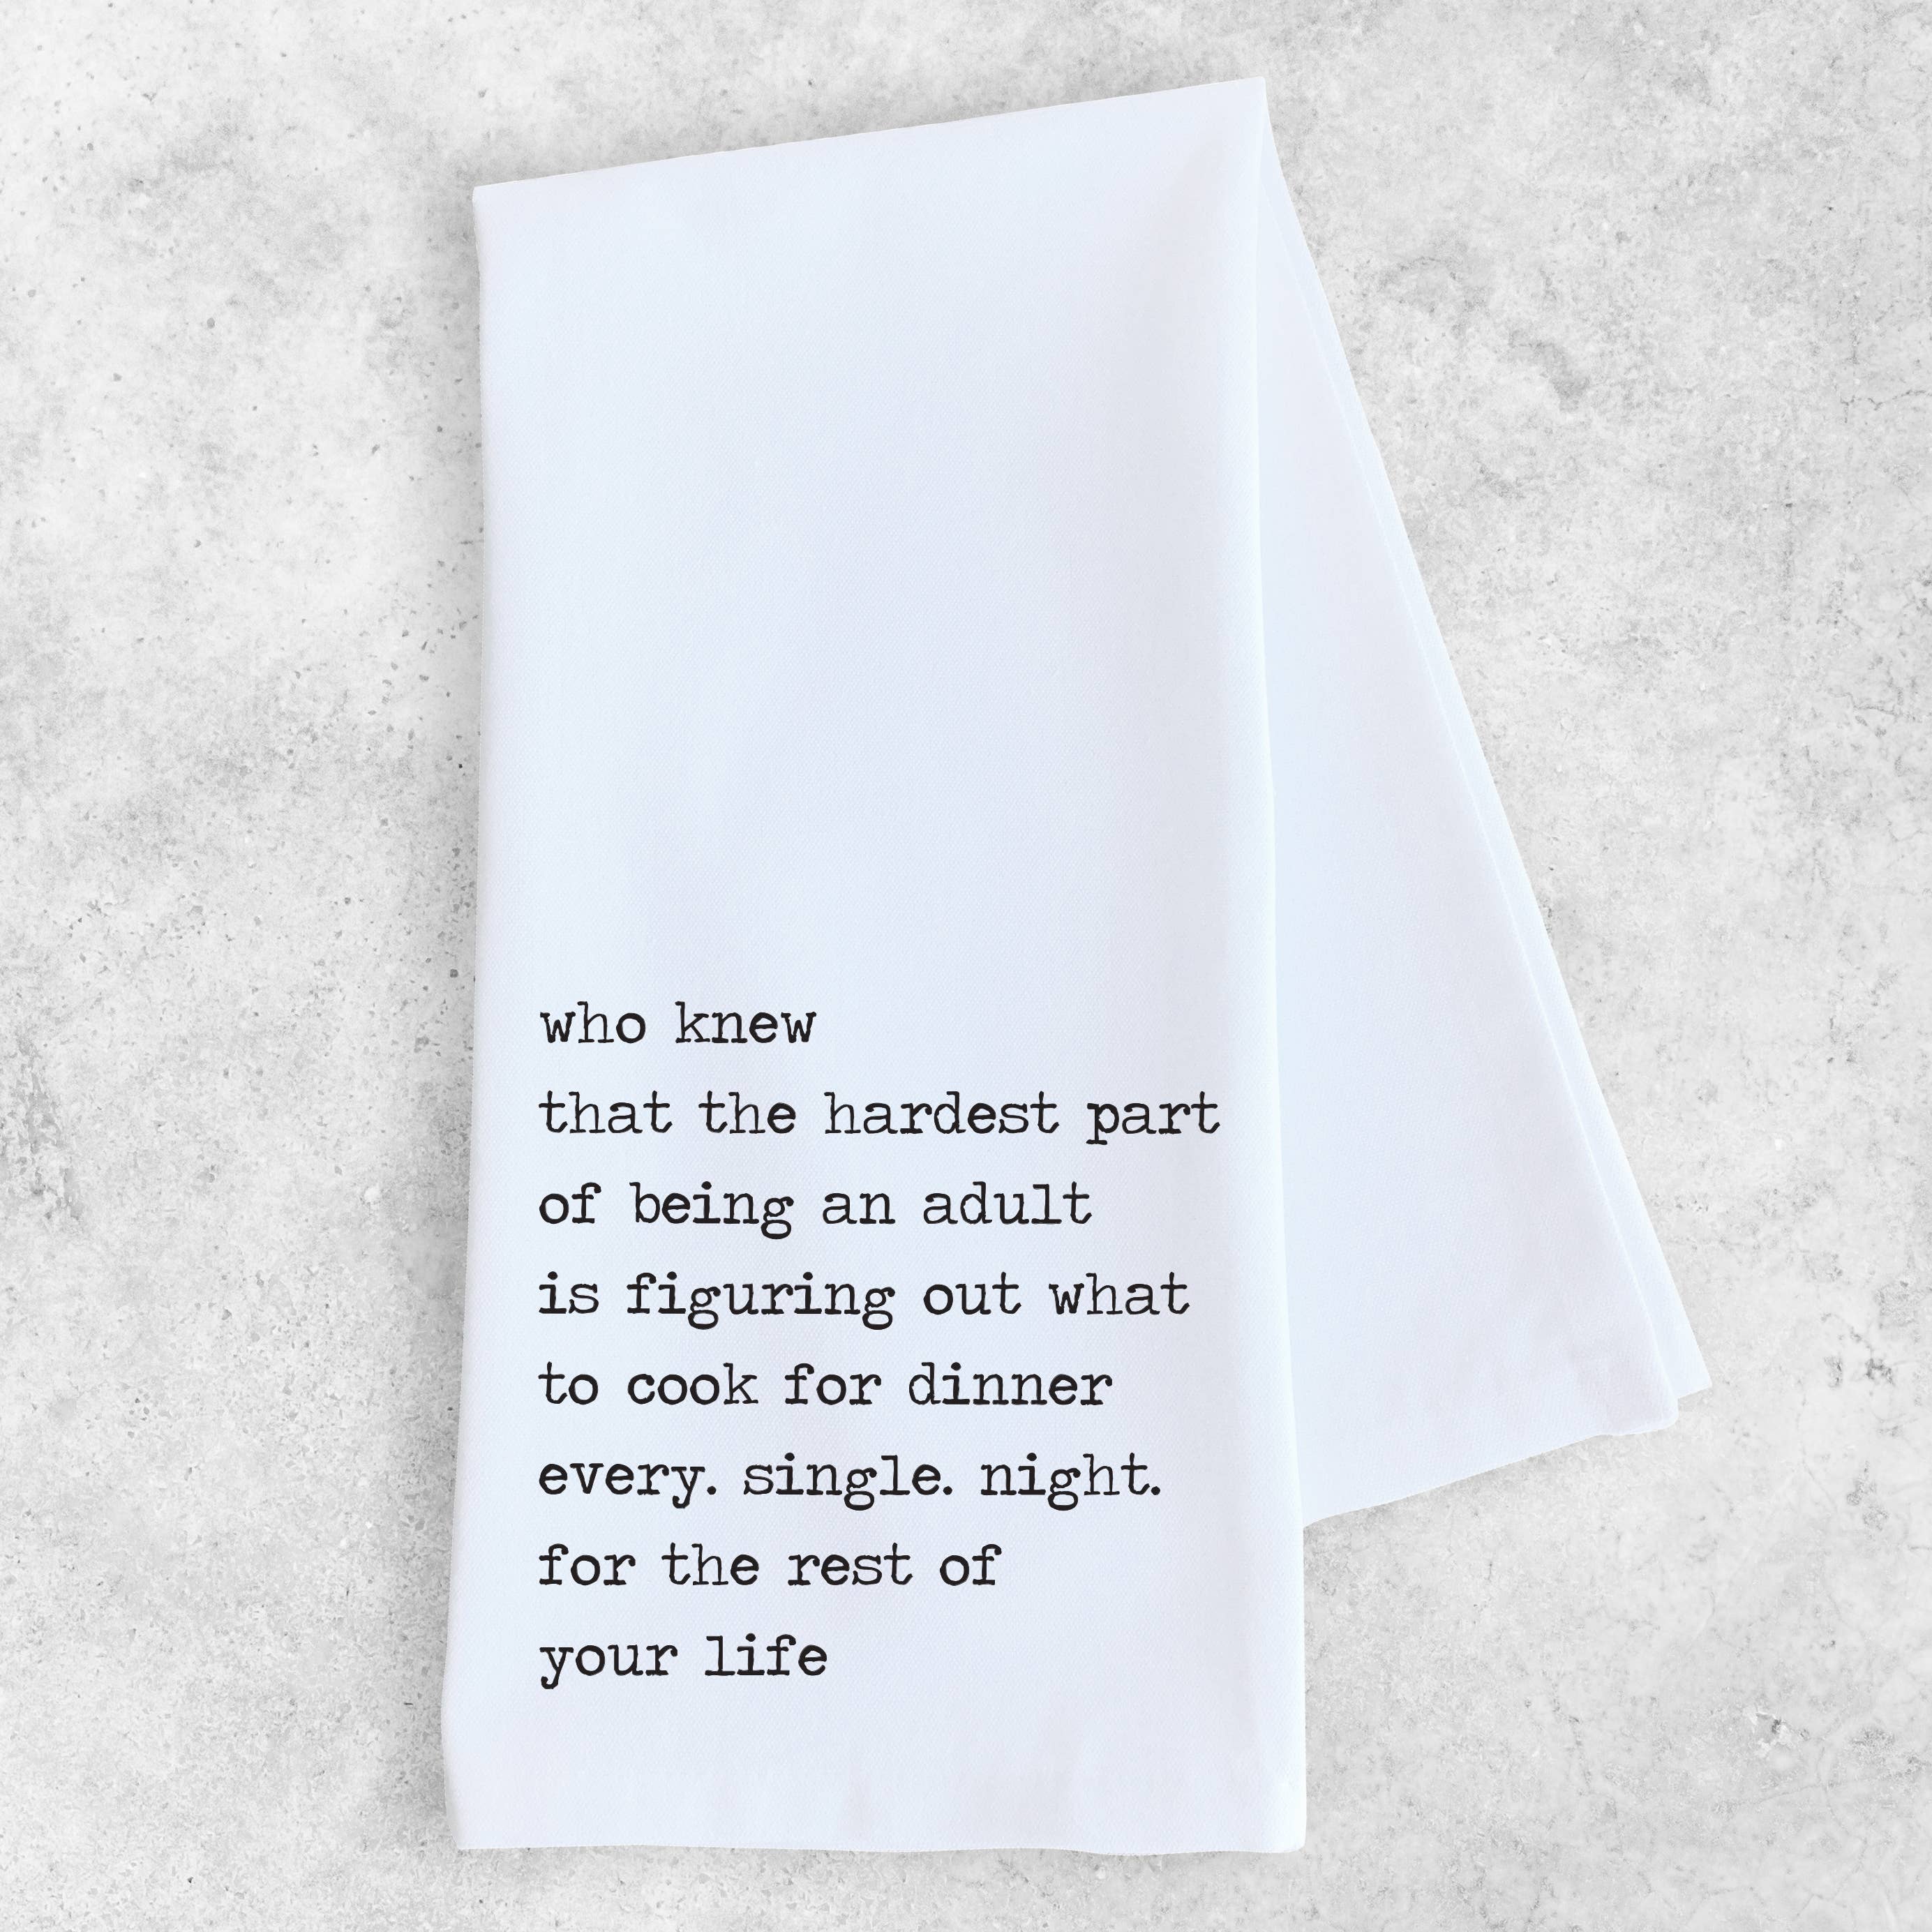 who knew
that the hardest part
of being an adult
is figuring out what
to cook for dinner
every. single. night.
for the rest of
your life